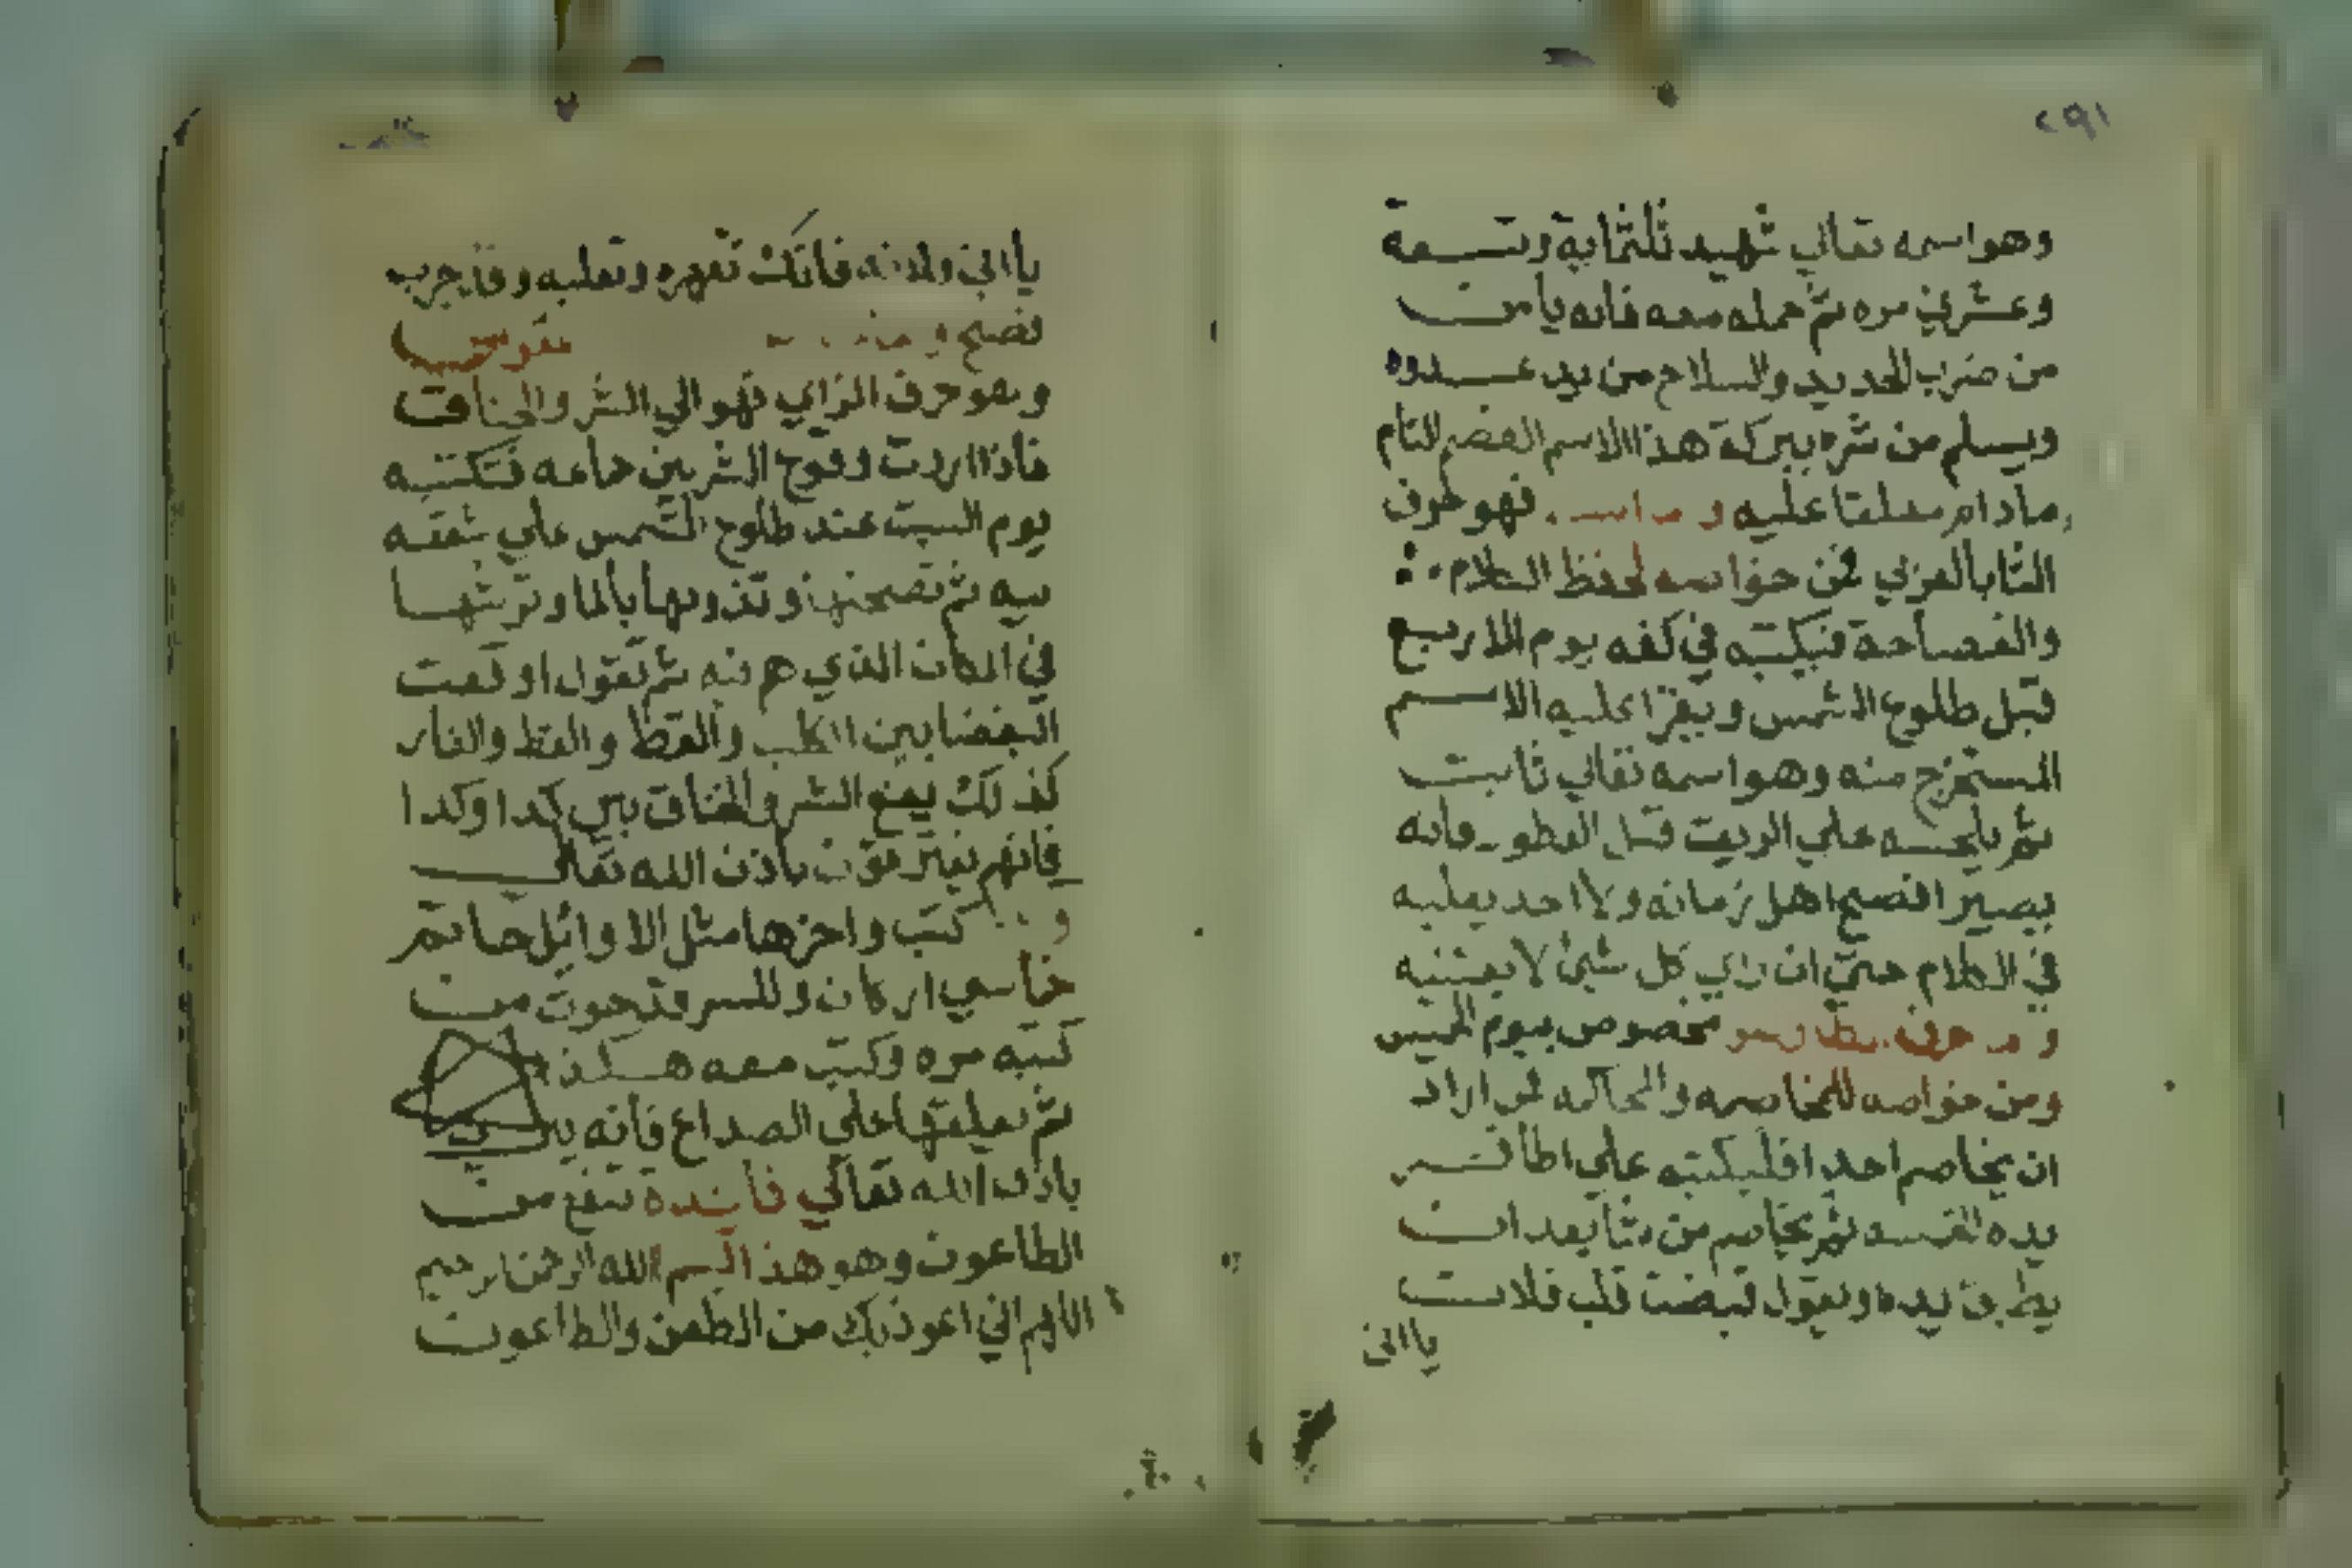 ٢٩١
وهو اسمه تعالي شهيد ثلثماية وتسعة
وعشرين مره ثم حمله معه فانه يامن
من ضرب الحديد والسلاح من يد عدوه
ويسلم من شره ببركة هذا الاسم التام
مادام معلقا عليه فهو حرف
الثا بالعربي فمن خواصه لحفظ الكلام
والفصاحة فيكتبه في كفه يوم الاربع
قبل طلوع الشمس ويقرا عليه الاسم
المستخرج منه وهو اسمه تعالي ثابت
ثم يلحسه علي الريق قبل الفطور فانه
يصير افصح اهل زمانه ولا احد يغلبه
في الكلام حتي ان راي كل شئ لا يعثنيه
و حرف الظا وهو مخصوص بيوم الخميس
ومن خواصه للمخاصمه والمحاكمه لمن اراد
ان يخاصم احدا فليكتبه علي اظافر
يده الخمسه ثم يخاصم من شا بعد ان
يطبق يده ويقول قبضت قلب فلان
يا الن
يا الن ولدنه فانك تقهره وتغلبه وقد جرب
فصح و
وهو حرف الزاي فهو الي الشر والخناق
فاذا اردت وقوع الشر بين جماعه فتكتبه
يوم السبت عند طلوع الشمس علي شقفه
نيه ثم تصحنها وتذوبها بالما وترشها
في المكان الذي هم فيه ثم تقول اوقعت
البغضا بين الكلب والقط والقط والفار
كذلك يقع الشر والخناق بين كدا وكدا
فانهم يفترقون باذن الله تعالي
و كتب واخرها مثل الاوائل خاتم
خماسي اركان وللسر قد حوت من
كتبه مره وكتب معه هكذا
ثم تعليقها علي الصداع فانه يبري
باذن الله تعالي فايده تنفع من
الطاعون وهو هذا بسم الله الرحمن الرحيم
اللهم اني اعوذ بك من الطعن والطاعون